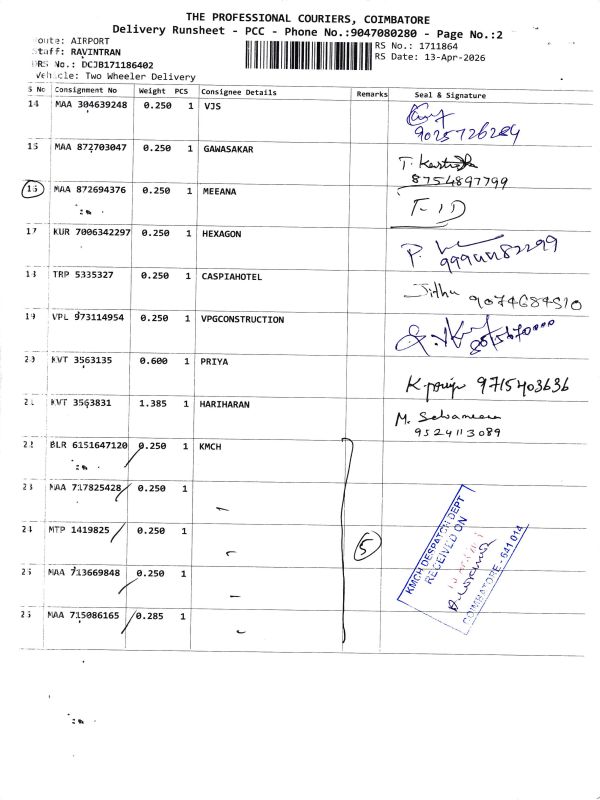 THE PROFESSIONAL COURIERS, COIMBATORE
Delivery Runsheet - PCC - Phone No.:9047080280 - Page No.:2
oute: AIRPORT
Staff: RAVINTRAN
DRS No.: DCJB171186402
Vehicle: Two Wheeler Delivery
RS No.: 1711864
RS Date: 13-Apr-2026
S No Consignment No Weight PCS Consignee Details Remarks Seal & Signature
14 MAA 304639248 0.250 1 VJS
9025726284
15 MAA 872703047 0.250 1 GAWASAKAR
8754897799
16 MAA 872694376 0.250 1 MEEANA
17 KUR 7006342297 0.250 1 HEXAGON
18 TRP 5335327 0.250 1 CASPIAHOTEL Jithu 9074684510
19 VPL 973114954 0.250 1 VPGCONSTRUCTION
20 KVT 3563135 0.600 1 PRIYA
9715403636
21 KVT 3563831 1.385 1 HARIHARAN
9524113089
22 BLR 6151647120 0.250 1 KMCH
23 MAA 717825428 0.250 1
24 MTP 1419825 0.250 1
5
25 MAA 713669848 0.250 1
26 MAA 715086165 0.285 1
KMCH DESPATCH DEPT
RECEIVED ON
COIMBATORE - 641 014